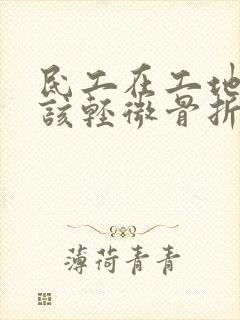 民工在工地
該輕微骨折
薄荷青青